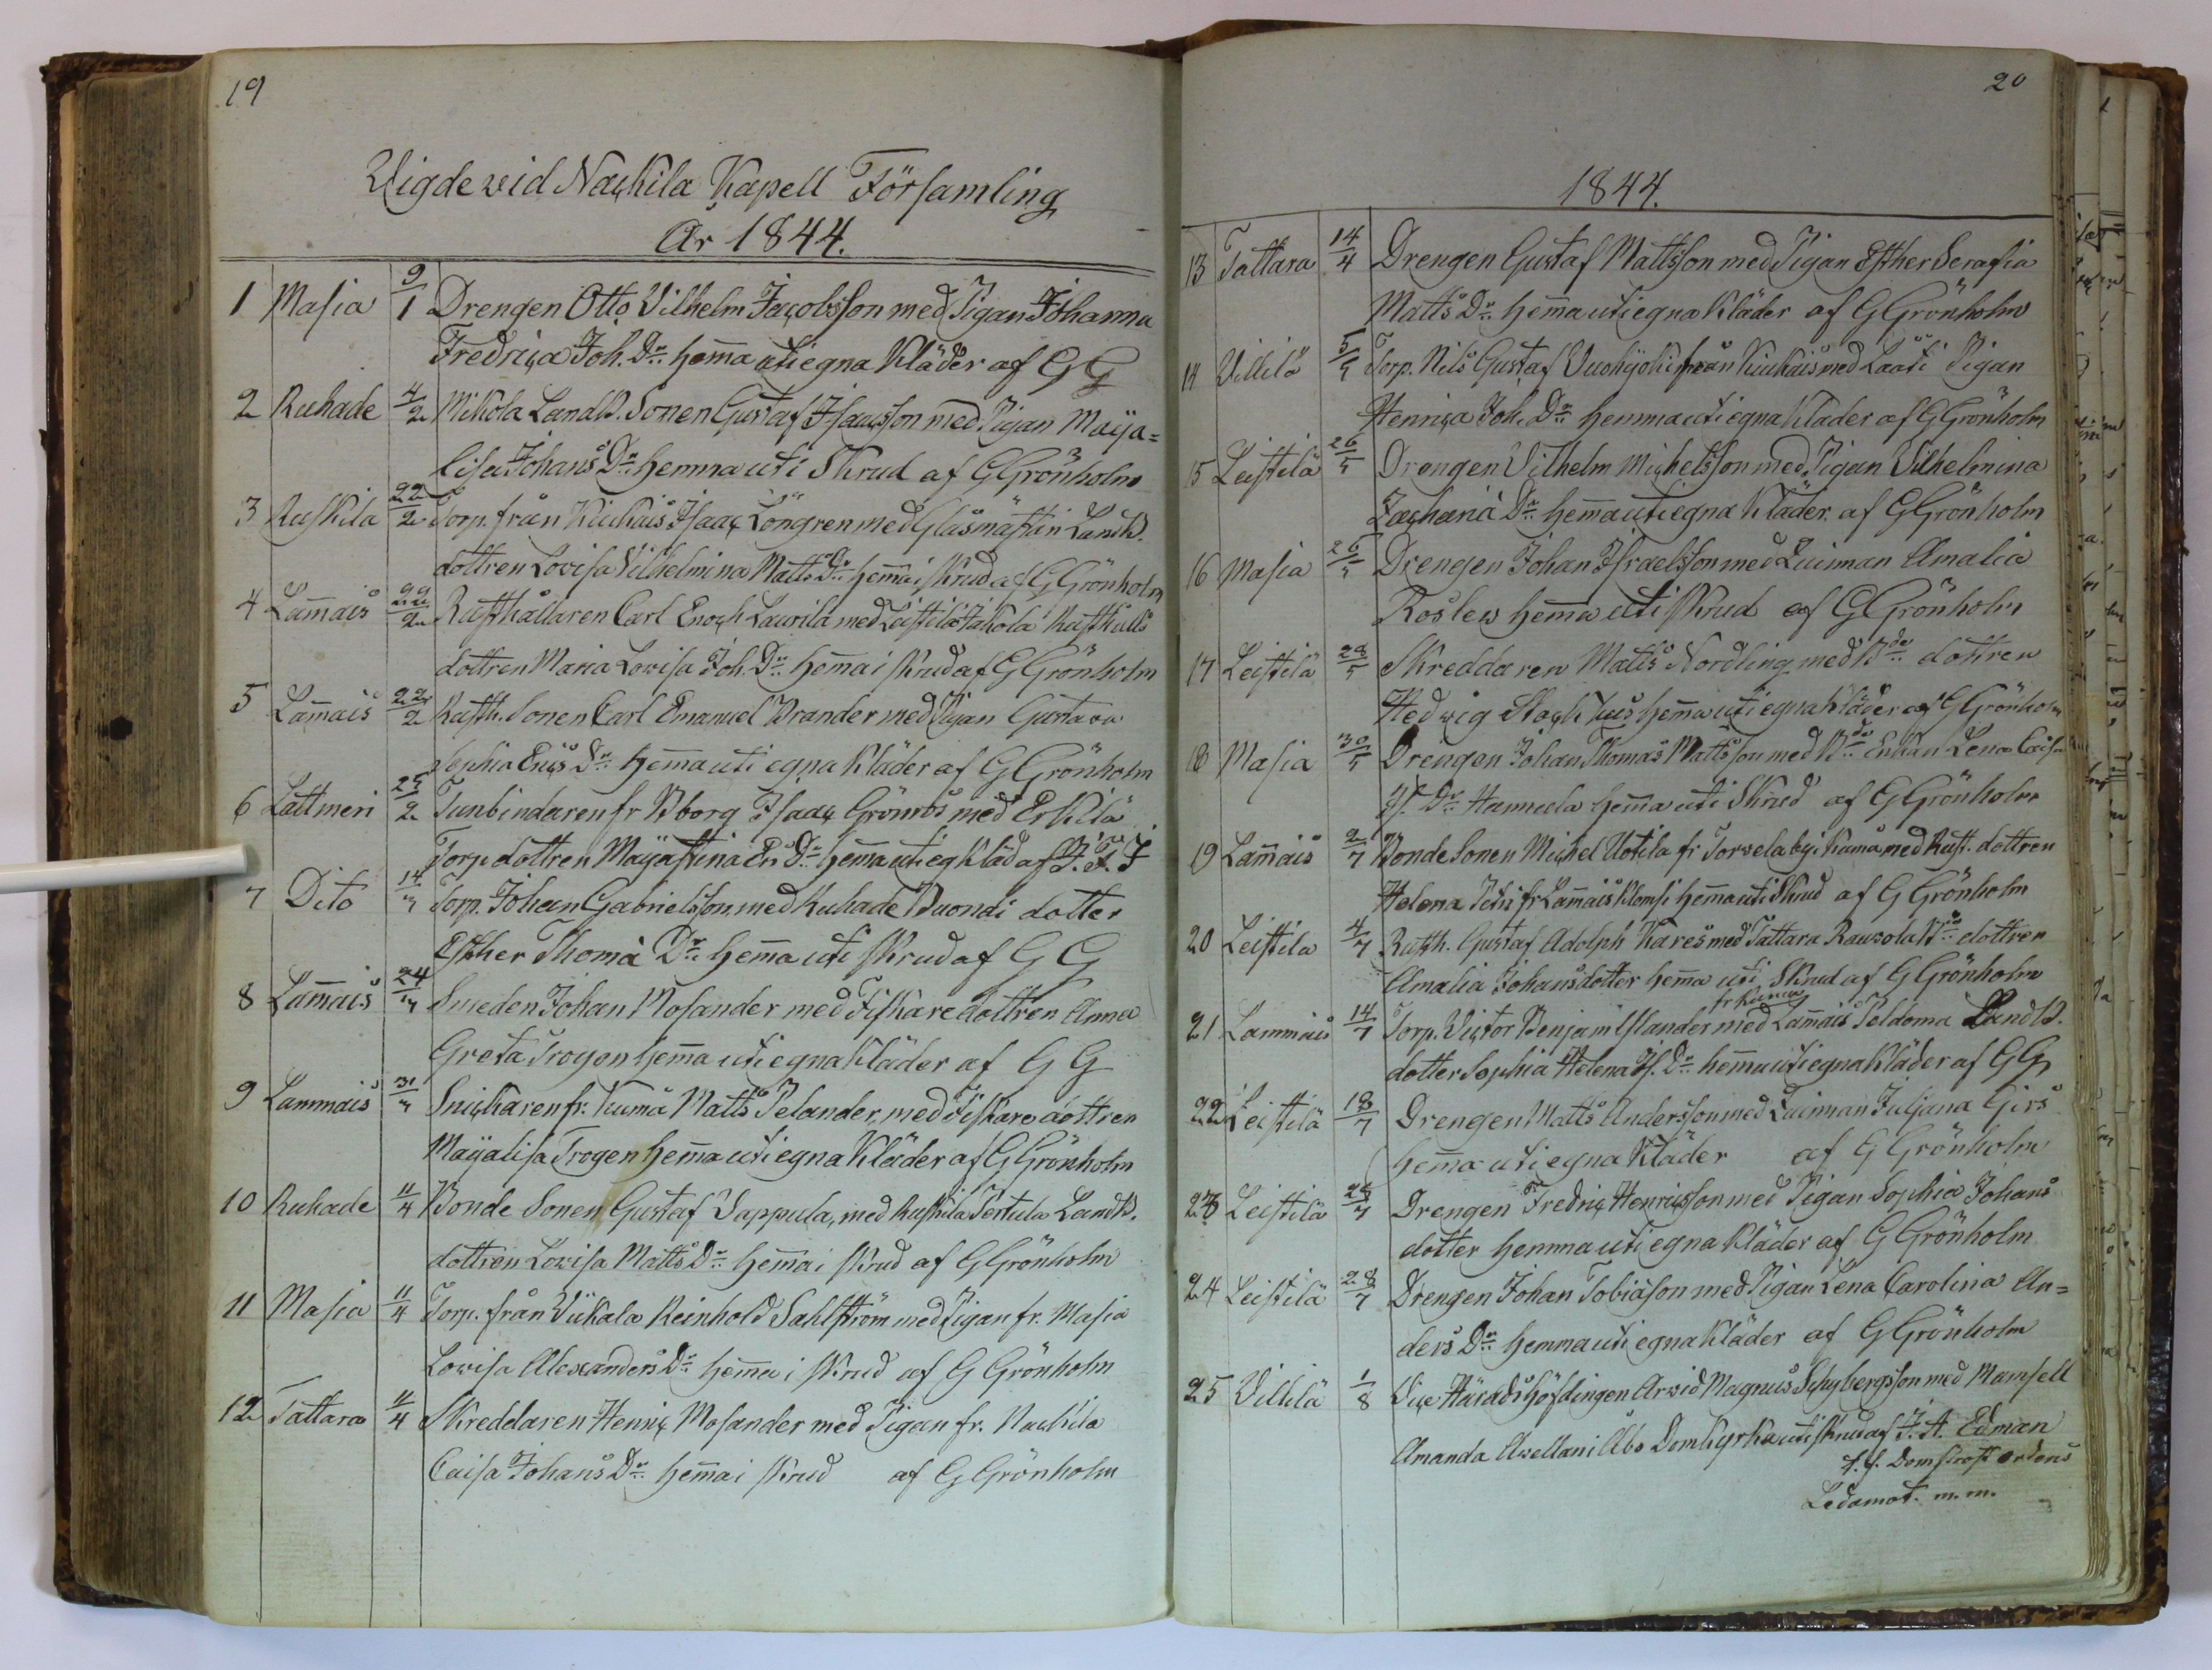 19
Vigde wid Nackila Kapell Församling
År 1844.
1 Masia 9/1 Drengen Otto Vilhelm Jacobsson med Pigan Johanna
Fredrica Joh. Dr. hem̄a uti egna Kläder af G G
2 Ruhade 4/2 Mikola Landb. Sonen Gustaf Isacsson med Pigan Maija=
lisa Johans Dr. hemma uti Skrud af G Grönholm
3 Ruskila 22/2 Torp. från Kiukais Isaac Löngren med Glasmästin Landb.
dottren Lovisa Vilhelmina Matts Dr. hem̄a i skrud af G Grönholm
4 Lam̄ais 22/2 Rusthållaren Carl Enoch Laurila med Leistilä Jakola Rusthålls
dottren Maria Lovisa Joh. Dr. hem̄a i skrud af G Grönholm
5 Lam̄ais 22/2 Rusth. Sonen Carl Emanuel Brander med Pigan Gustava
Sophia Erics Dr. hem̄a uti egna kläder af G Grönholm
6 Lattmeri 25/2 Tunbindaren fr Bborg Isaac Grönroos med Erkilä
Torp. dottren Maija Stina Ers Dr. hem̄a uti eg Kläd af F. F. F
7 Dito 14/3 Torp. Johan Gabrielsson med Ruhade Buondi dotter
Esther Thomæ Dr. hem̄a uti skrud af G G
8 Lam̄ais 24/3 Smeden Johan Mosander med Fiskare dottren Anna
Greta Trogen hem̄a uti egna kläder af G G
9 Lammais 31/3 Snickaren fr. Kumå Matts Pelander, med Fiskare dottren
Maijalisa Trogen hem̄a uti egna Kläder af G Grönholm
10 Ruhade 11/4 Bonde Sonen Gustaf Vappula, med Ruskila Pertula Landb.
dottren Lovisa Matts Dr. hem̄a i skrud af G Grönholm
11 Masia 11/4 Torp. från Vikala Reinhold Sahlström med Pigan fr. Masia
Lovisa Alexanders Dr. hem̄a i skrud af G Grönholm
12 Tattara 11/4 Skreddaren Henric Mosander med Pigan fr. Nackila
Caisa Johans Dr. hem̄a i skrud af G Grönholm
20
1844.
13 Tattara 14/4 Drengen Gustaf Mattsson med Pigan Esther Serafia
Matts Dr. hem̄a uti egna Kläder af G Grönholm
14 Villilä 5/5 Torp. Nils Gustaf Vuohijoki från Kiukais med Pigan
Henrica Joh. Dr. hemma uti egna Kläder af G Grönholm
15 Leistilä 26/5 Drengen Vilhelm Michelsson med Pigan Vilhelmina
Zachariæ Dr. hem̄a uti egna Kläder af G Grönholm
16 Masia 26/5 Drengen Johan Israelsson med Quinnan Amalia
Roslew hem̄a uti skrud af G Grönholm
17 Leistilä 28/5 Skreddaren Matts Nordling med Bde. dottren
Hedvig Stackhus hem̄a uti egna kläder af G Grönholm
18 Masia 30/5 Drengen Johan Thomas Mattsson med Bde. Enkan Lena Caisa
Js. Dr. Hannula hem̄a uti Skrud af G Grönholm
19 Lam̄ais 2/7 Bonde Sonen Michel Uotila fr Torvela by i Kumå med Rust. dottren
Helena fr Lam̄ais Klemsi hem̄a uti Skrud af G Grönholm
20 Leistila 4/7 Rusth. Gustaf Adolph Kares med Tattara Rausola Bde. dottren
Amalia Johansdotter hem̄a uti Skrud af G Grönholm
fr Kumo
21 Lammais 14/7 Torp. Victor Benjamin Islander med Lam̄ais Peldoma Landb.
dotter Sophia Helena Js. Dr. hem̄a uti egna Kläder af G G
22 Leistilä 18/7 Drengen Matts Andersson med Quinnan Juljana Girs
hem̄a uti egna Kläder af G Grönholm
23 Leistilä 26/7 Drengen Fredric Henricsson med Pigan Sophia Johans
dotter hemma uti egna Kläder af G Grönholm
24 Leistilä 28/7 Drengen Johan Tobiasson med Pigan Lena Carolina An=
ders Dr. hemma uti egna Kläder af G Grönholm
25 Villilä 1/8 Vice Häradshöfdingen Arvid Magnus Schybergsson med Mamsell
Amanda Avellan i Åbo Domkyrka uti skrud af F. A. Edman
t. f. Domprost ordens
Ledamot. m. m.